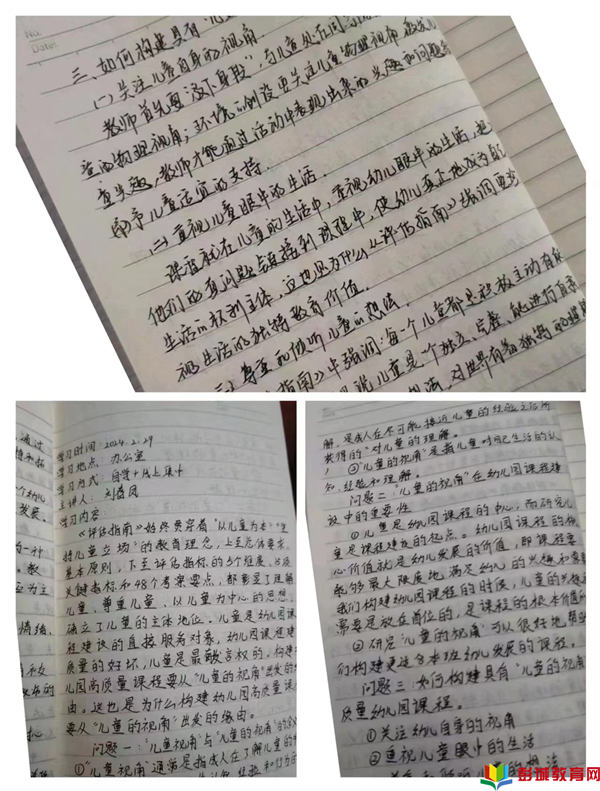 No.
Date:
三、如何构建具有"儿
(一)关注儿童自身的视角
教师首先要"没下身段",与儿童处在同
查的物理视角;环境的创设更关注儿童"物理视角
童失趣,教师才能通过活动中表现出来的兴趣和问题
即予儿童适宜的支持。
(二)重视儿童眼中的生活。
课程就在儿童的生活中,重视幼儿眼中的生活,把
他们的真问题链接到课程中,使幼儿真正地成为自的
生活的权利主体,这也是为什么《评估指南》强调要珍
视生活的独特教育价值。
尊重和倾听儿童的想法。
指南》中强调:每一个儿童都是积极主动有能
儿童是一个独立、完整、能进行自
对世界有着独特的
学习时间:2024.2.29
学习地点:办公室
学习方式:自学+线上集中
主讲人:刘
学习内容:
《评估指南》始终贯穿着"以儿童为本""坚
持儿童立场"的教育理念,上至总体要求、
基本原则,下至评估指标的5个维度、
关键指标和48个考察要点,都彰显了理解
儿童、尊重儿童、以儿童为中心的思想,
确立了儿童的主体地位。儿童是幼儿园课
程建设的直接服务对象,幼儿园课程建
质量的好坏,儿童是最有发言权的。构建
儿园高质量课程要从"儿童的视角"出发的
由。这也是为什么构建幼儿园高质量课
要从"儿童的视角"出发的缘由。
问题一:"儿童视角"与"儿童的视角"的
①"儿童视角"通常是指成人在了解儿童的
解,是成人在尽可能接近儿童的经验之后所
获得的"对儿童的理解。
②"儿童的视角"是指儿童对自己生活的认
知、经验和理解。
问题二:"儿童的视角"在幼儿园课程建
设中的重要性
①儿童是幼儿园课程的中心,而研究儿
童是课程建设的起点。幼儿园课程的核
心价值就是幼儿发展的价值,即课程要
能够最大限度地满足幼儿的兴趣和需要
我们构建幼儿园课程的时候,儿童的兴趣
需要是放在首位的,是课程的根本价值所
②研究"儿童的视角"可以很好地帮助
们构建更适合本班幼儿发展的课程。
问题三:如何构建具有"儿童的视角
质量幼儿园课程。
①关注幼儿自身的视角
②重视儿童眼中的生活
的想法
彭城教育网